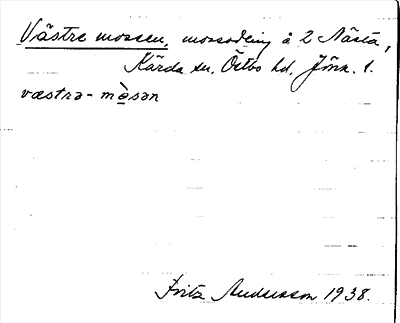 Västre mossen, mossodling å 2 Nästa,
Kärda sn. Östbo hd. Jönk. l.
væstrə - mòsən
Fritz Andersson 1938.